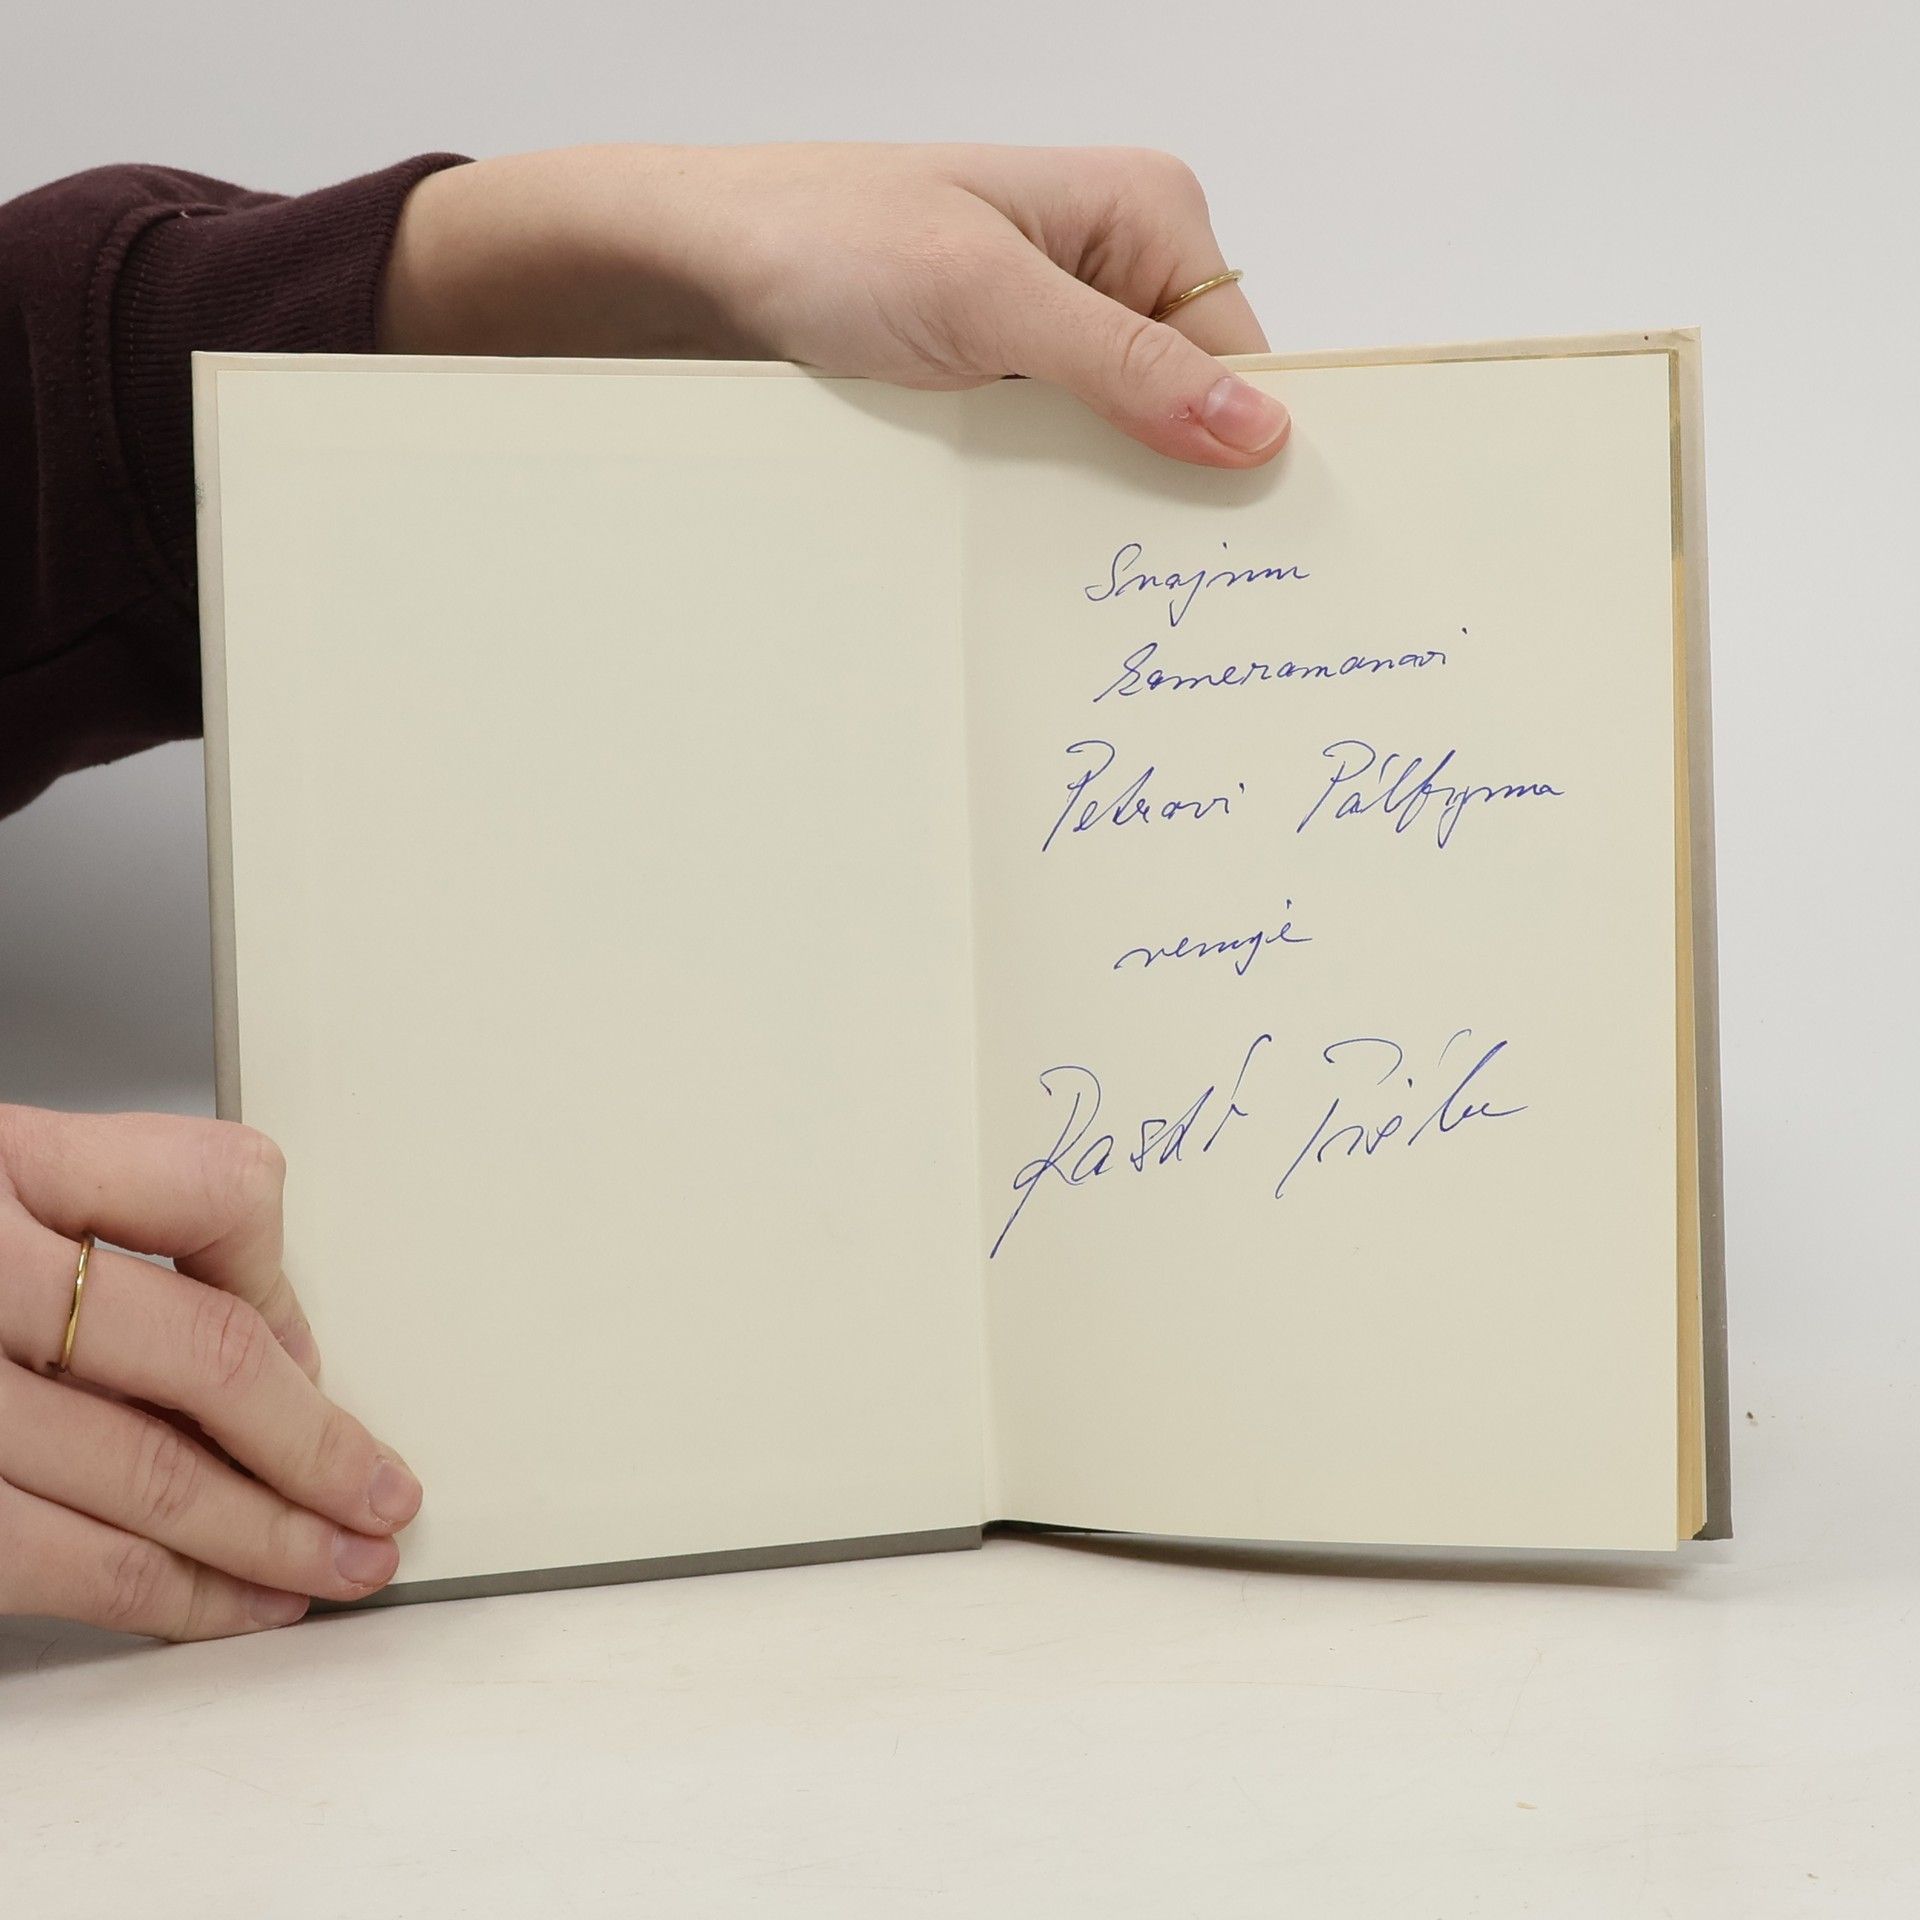 Svojmu
kameramanovi
Petrovi Pálfymu
venuje
Rasťo Piško